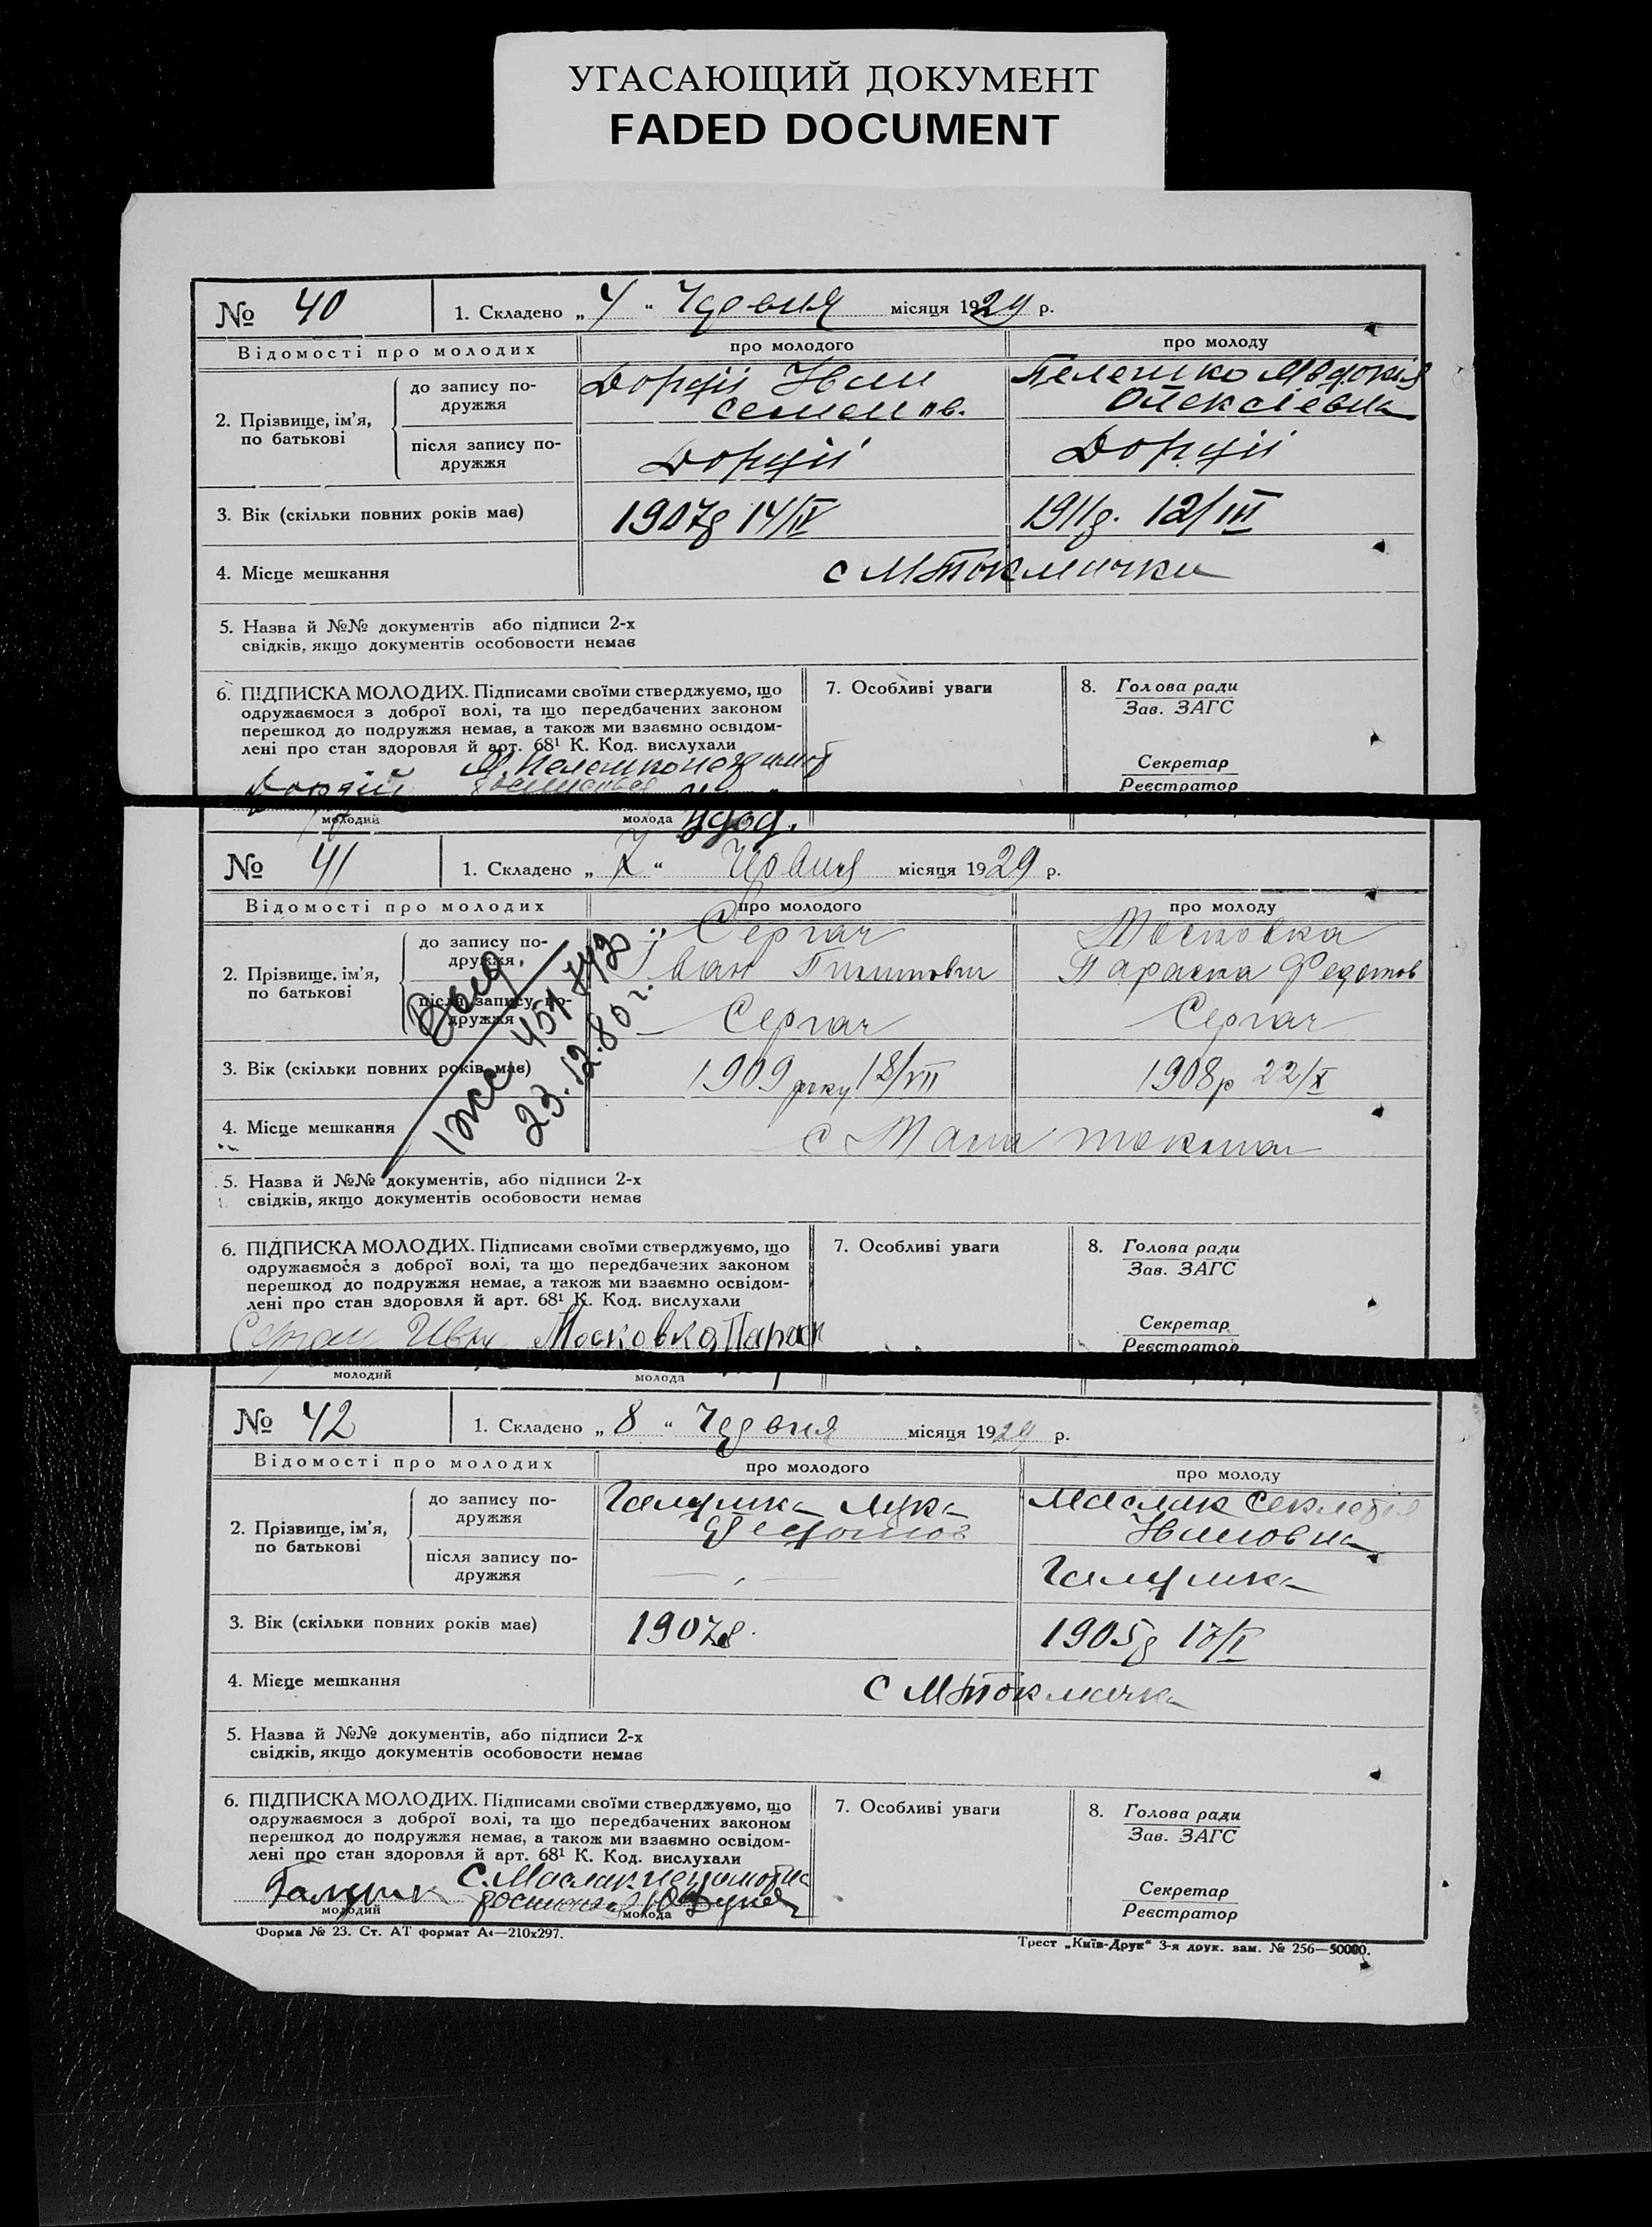 УГАСАЮЩИЙ ДОКУМЕНТ
FADED DOCUMENT
№ 40 1. Складено „ “ місяця 1929 р.
Відомості про молодих про молодого про молоду
2. Прізвище, ім’я, по батькові
до запису подружжя Семенов. Олексіевна
після запису подружжя
3. Вік (скільки повних років має) 1907р 14/IV 1911р. 12/III
4. Місце мешкання с МТокмачки
5. Назва й №№ документів або підписи 2-х
свідків, якщо документів особовости немає
6. ПІДПИСКА МОЛОДИХ. Підписами своїми стверджуємо, що
одружаємося з доброї волі, та що передбачених законом
перешкод до подружжя немає, а також ми взаємно освідом-
лені про стан здоровля й арт. 68¹ К. Код. вислухали
7. Особливі уваги
8. Голова ради
Зав. ЗАГС
Секретар
Реєстратор
молодий молода
№ 41 1. Складено „ “ місяця 1929 р.
Відомості про молодих про молодого про молоду
2. Прізвище, ім’я, по батькові
до запису подружжя, Сергач Московка
Іван Параска Федотов
після запису подружжя Сергач Сергач
3. Вік (скільки повних років має) 1909 року 18/VII 1908р 22/X
4. Місце мешкання с Мала
23.12.80 г.
5. Назва й №№ документів, або підписи 2-х
свідків, якщо документів особовости немає
6. ПІДПИСКА МОЛОДИХ. Підписами своїми стверджуємо, що
одружаємося з доброї волі, та що передбачених законом
перешкод до подружжя немає, а також ми взаємно освідом-
лені про стан здоровля й арт. 68¹ К. Код. вислухали
Московка Параск
7. Особливі уваги
8. Голова ради
Зав. ЗАГС
Секретар
Реєстратор
молодий молода
№ 42 1. Складено „ 8 “ Червня місяця 1929 р.
Відомості про молодих про молодого про молоду
2. Прізвище, ім’я, по батькові
до запису подружжя Галушка Лука Маслак Секлетія
Федотов Івановна
після запису подружжя Галушка
3. Вік (скільки повних років має) 1907р. 1905р
4. Місце мешкання с МТокмачка
5. Назва й №№ документів, або підписи 2-х
свідків, якщо документів особовости немає
6. ПІДПИСКА МОЛОДИХ. Підписами своїми стверджуємо, що
одружаємося з доброї волі, та що передбачених законом
перешкод до подружжя немає, а також ми взаємно освідом-
лені про стан здоровля й арт. 68¹ К. Код. вислухали
С. Маслак
7. Особливі уваги
8. Голова ради
Зав. ЗАГС
Секретар
Реєстратор
молодий молода
Форма № 23. Ст. АТ формат А₄—210х297.
Трест „Київ-Друк“ 3-я друк. зам. № 256—50000.